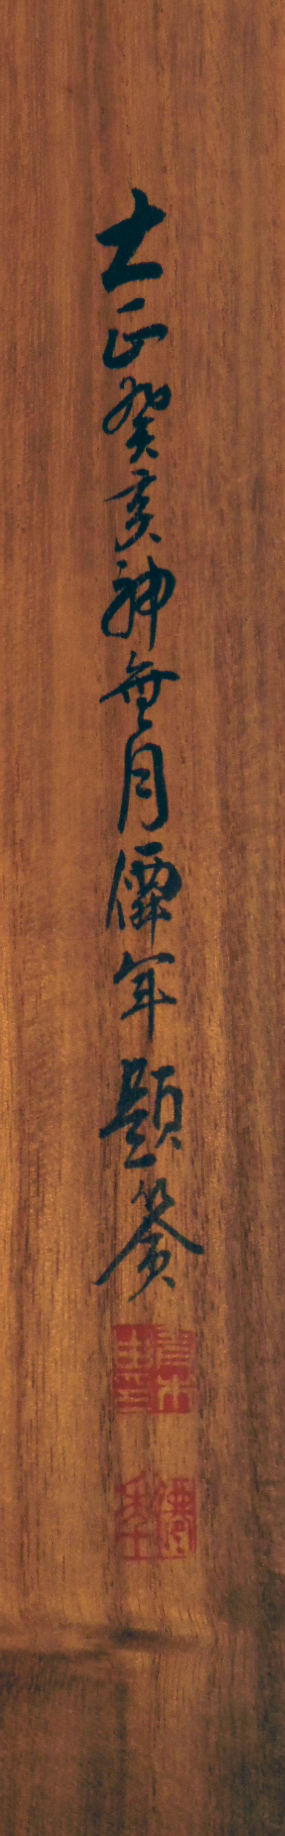 大正癸亥神無月僊年題簽